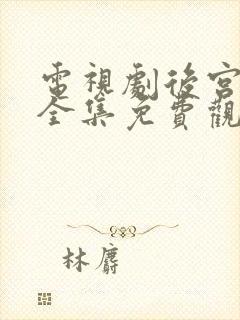 電視劇後宮
全集免費觀
林麝